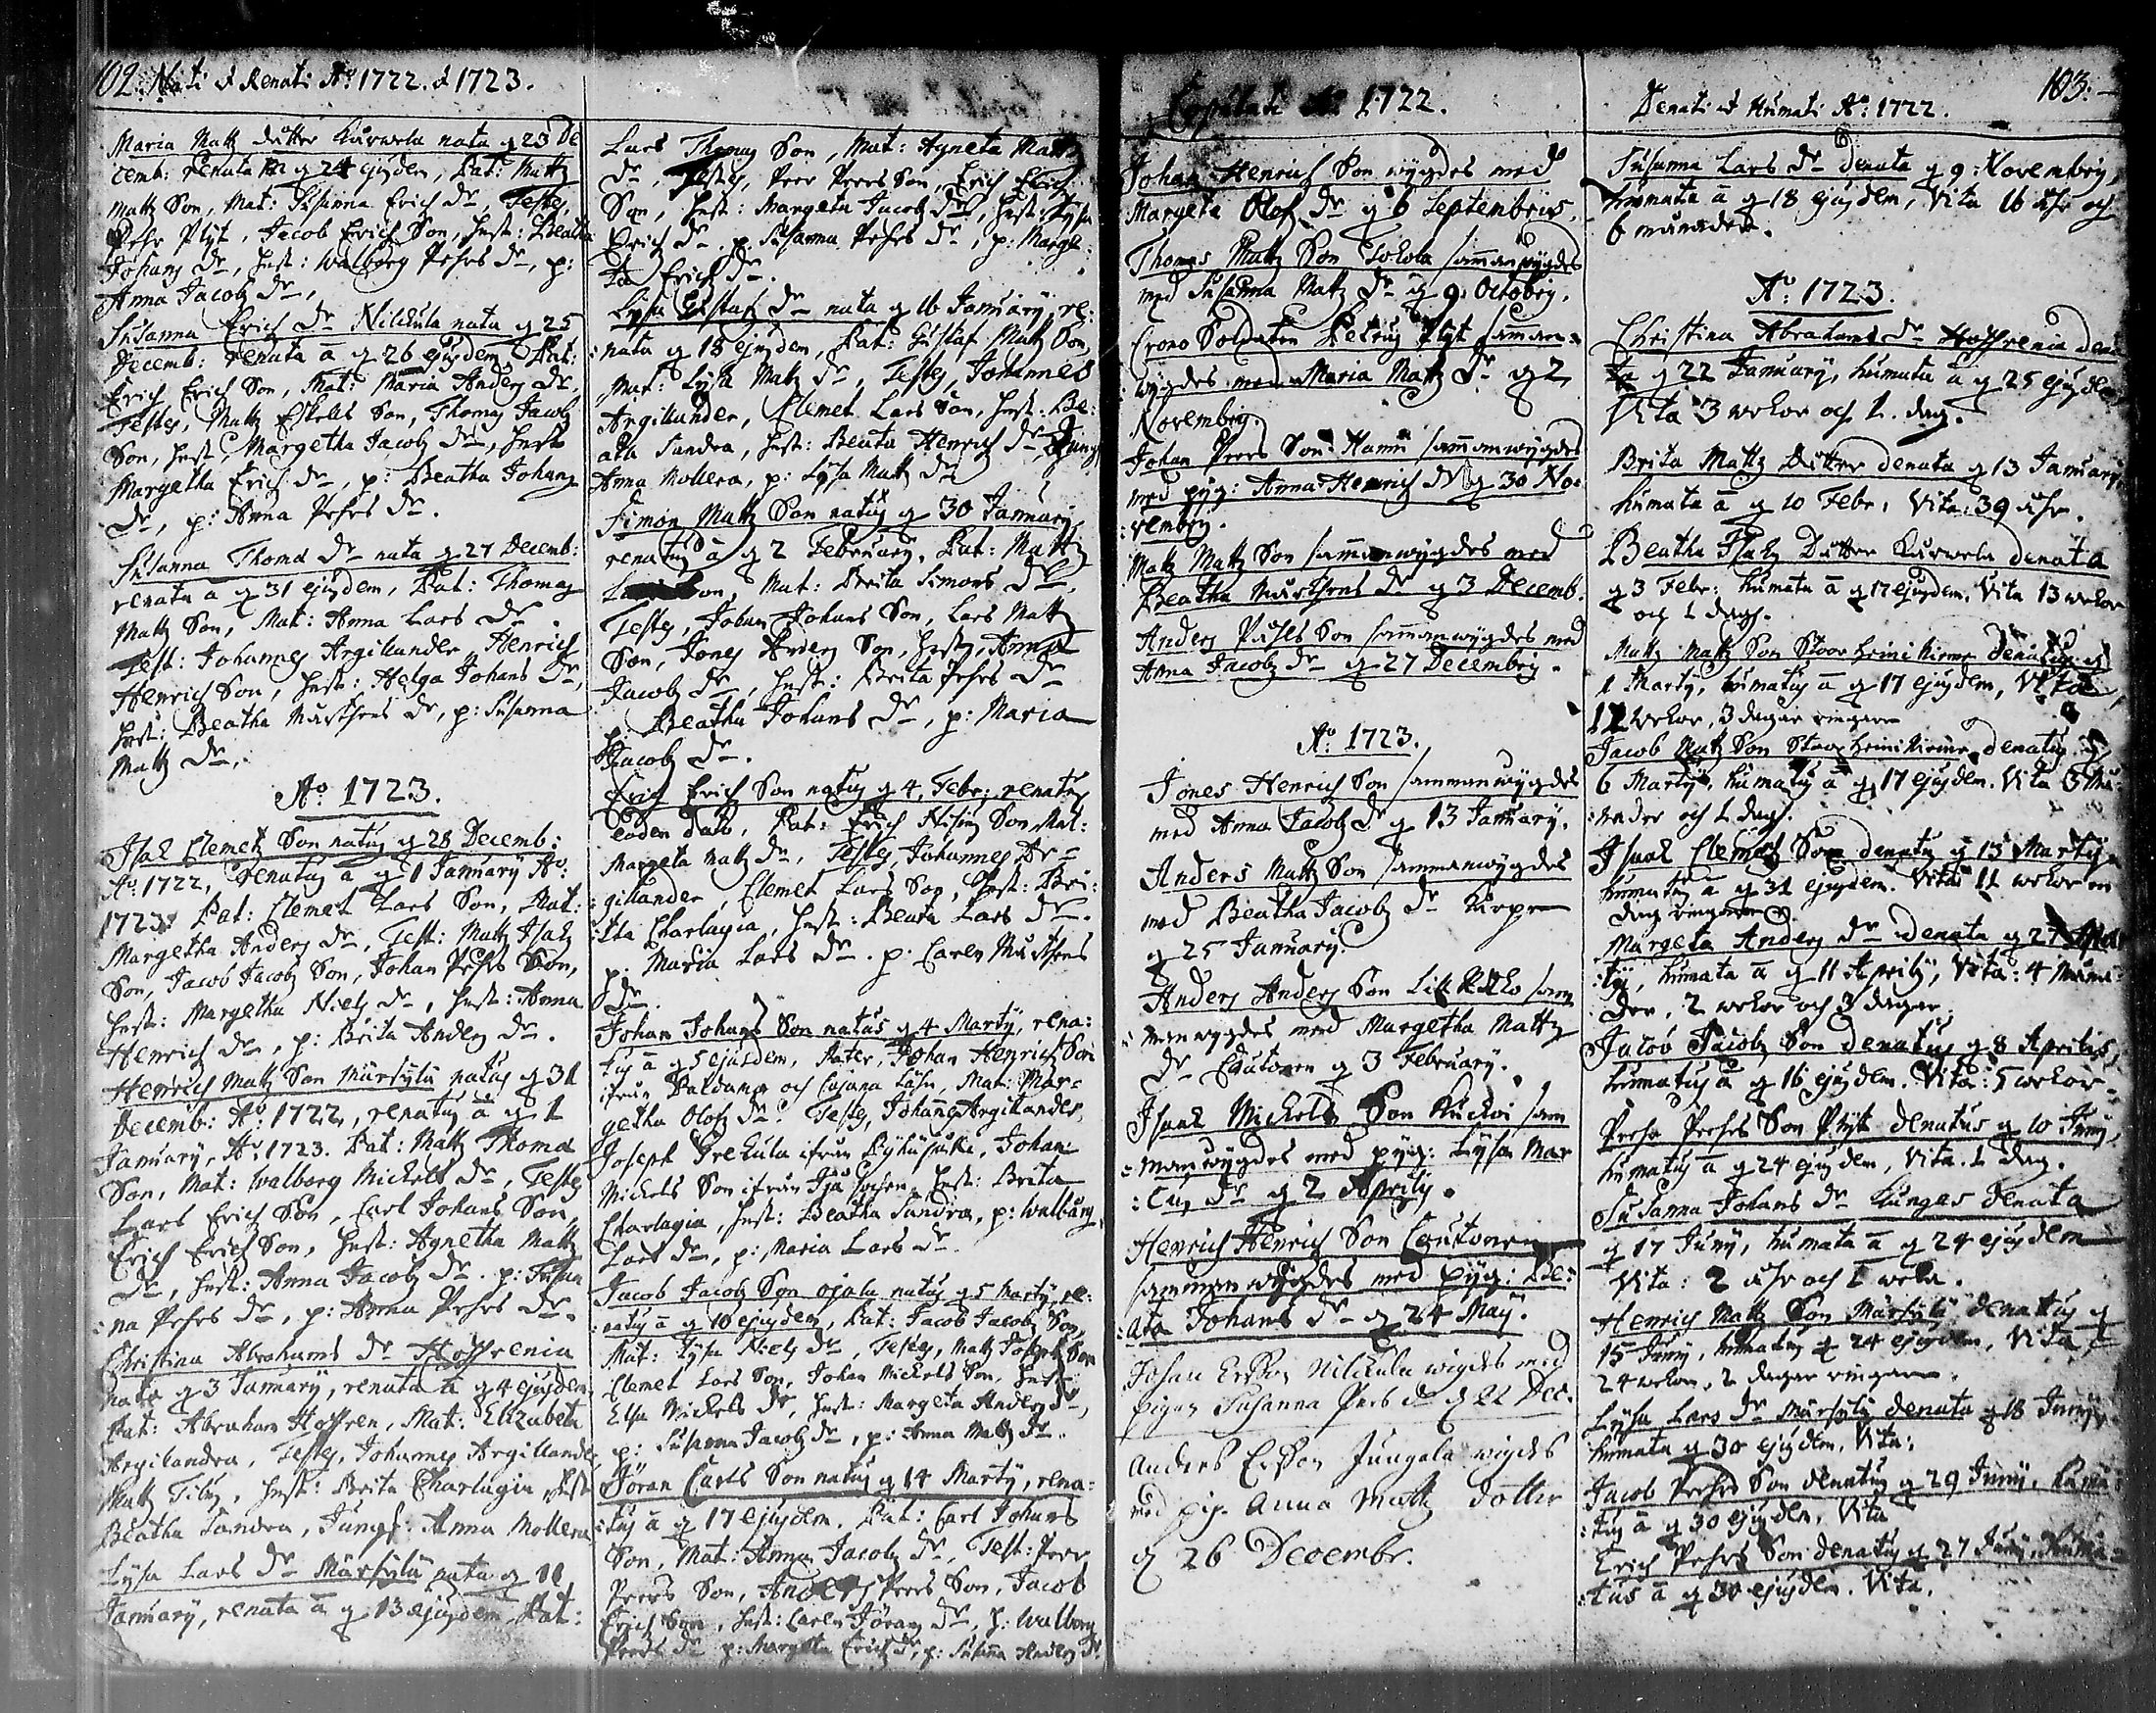 102. Nati & Renati Aᵒ: 1722. & 1723.
Maria Mattz dotter Kurwela nata q 23 De
cemb: renata q 24 ejusdem, Pat: Mattz
Mattz Son, Mat: Susanna Erich Dr, Testes,
Pehr Plyt, Jacob Erich Son, hust: Beatha
Johans Dr, hust: Walborg Pehrs Dr, p:
Anna Jacobz Dr,
Susanna Erich Dr Nilckula nata q 25
Decemb: renata ā q 26 ejusdem Pat:
Erich Erich Son, Mat: Maria Anders Dr,
Testes, Mattz Eskells Son, Thomas Jacobz
Son, hust, Margetha Jacobz Dr, hust:
Margetha Erich Dr, p: Beatha Johans
Dr, p: Anna Pehrs Dr.
Susanna Thoma Dr nata q 27 Decemb:
renata ā q 31 ejusdem, Pat: Thomas
Mattz Son, Mat: Anna Lars Dr.
Test: Johannes Argillander, Henrich
Henrich Son, hust: Helga Johans Dr,
hust: Beatha Murthens Dr, p: Susanna
Mattz Dr,
Aᵒ 1723.
Isak Clemetz Son natus q 28 Decemb:
Aᵒ: 1722, renatus ā q 1 January Aᵒ:
1723. Pat: Clemet Lars Son, Mat:
Margetha Anders Dr, Test: Mattz Isakz
Son, Jacob Jacobz Son, Johan Pehrs Son,
hust: Margetha Niels Dr, hust: Anna
Henrich Dr, p: Brita Anders Dr.
Henrich Mattz Son Mursylu natus q 31
Decemb: Aᵒ: 1722, renatus ā q 1
January, Aᵒ 1723. Pat: Mattz Thoma
Son, Mat: Walborg Mickels Dr, Testes
Lars Erich Son, Carl Johans Son,
Erich Erich Son, hust: Agnetha Mattz
Dr, hust: Anna Jacobz Dr. p: Susan
:na Pehrs Dr, p: Anna Pehrs Dr.
Christina Abrahams Dr Hoffrenia
nata q 3 January, renata ā q 4 ejusdem,
Pat: Abraham Hoffren, Mat: Elizabeta
Argilandra, Testes, Johannes Argillander
Mattz Tiluz, hust: Brita Charlagia, hust:
Beatha Sandra, Jungf: Anna Mollera
Lysa Lars Dr Mursylu nata q 11
January, renata ā q 13 ejusdem, Pat:
Lars Thomas Son, Mat: Agneta Mattz
Dr, Testes, Peer Peers Son, Erich Erich
Son, hust: Margeta Jacobz Dr, hust: Lysa
Erich Dr. p: Susanna Pehrs Dr, p: Marge:
ta Erich Dr.
Lysa Gustaf Dr nata q 16 January, re:
:nata q 18 ejusdem, Pat: Gustaf Mattz Son,
Mat: Lysa Mattz Dr, Testes, Johannes
Argillander, Clemet Lars Son, hust: Be:
ata Sandra, hust: Beata Henrich Dr, Jungf
Anna Mollera, p: Lysa Mattz Dr
Simon Mattz Son natus q 30 January
renatus ā q 2 February, Pat: Mattz
Son, Mat: Brita Simons Dr,
Testes, Johan Johans Son, Lars Mattz
Son, Jones Anders Son, hust, Anna
Jacobz Dr, hust: Brita Pehrs Dr
p: Beatha Johans Dr, p: Maria
Jacobz Dr.
Erich Erich Son natus q 4 Febr: renatus
eodem dato, Pat: Erich Son, Mat:
Margeta Mattz Dr, Testes, Johannes Ar=
gillander, Clemet Lars Son, hust: Bri:
:ta Charlagia, hust: Beata Lars Dr.
p: Maria Lars Dr. p: Caren Murthens
Dr.
Johan Johans Son natus q 4 Marty, rena:
tus ā q 5 ejusdem, Pater, Johan Henrich Son
ifrån Paldama och Cajana Lähn, Mat: Mar=
getha Olofz Dr. Testes, Johannes Argilander,
Joseph Prekula ifrån Pyhäjoki, Johan
Mickels Son ifrån Ijå sochen, hust: Brita
Charlagia, hust: Beatha Sandra, p: Walborg
Lars Dr, p: Maria Lars Dr.
Jacob Jacobz Son Ojala natus q 5 Marty re:
:natus ā q 10 ejusdem, Pat: Jacob Jacobz Son,
Mat: Lysa Niels Dr, Testes, Mattz Joseph Son
Clemet Lars Son, Johan Mickels Son, hust:
Elsa Mickels Dr, hust: Margeta Anders Dr,
p: Susanna Jacobz Dr, p: Anna Mattz Dr.
Jöran Carls Son natus q 14 Marty, rena=
:tus ā q 17 ejusdem. Pat: Carl Johans
Son, Mat: Anna Jacobz Dr, Test: Peer
Peers Son, Anders Peers Son, Jacob
Erich Son, hust: Caren Jörans Dr, p: Walborg
Peers Dr p: Margeta Erich Dr, p: Susanna Anders Dr.
Copulati Aᵒ 1722.
Johan Henrich Son wygdes med
Margeta Olofz Dr q 6 Septembris.
Thomas Mattz Son Tokola sammanwygdes
med Susanna Mattz Dr q 9 Octobrij.
Crono Soldaten Petrus Plyt samman=
wygdes med Maria Mattz Dr q 2
Novembrij.
Johan Peers Son Hanni sammanwygdes
med pyg: Anna Henrich Dr q 30 No=
:vembrij.
Mattz Mattz Son sammanwygdes med
Beatha Murthens Dr q 3 Decemb.
Anders Påhls Son sammanwygdes med
Anna Jacobz Dr q 27 Decembrij.
Aᵒ: 1723.
Jones Henrich Son sammanwygdes
med Anna Jacobz Dr q 13 January.
Anders Mattz Son sammanwygdes
med Beatha Jacobz Dr
q 25 January.
Anders Anders Son sam
manwygdes med Margetha Mattz
Dr Cautonen q 3 February.
Isaak Mickels Son Kuckoi sam
=manwygdes med pyg: Lysa Mar
:cus Dr q 2 Aprilij.
Henrich Henrich Son Cautonen
sammanwygdes med pyg: Be:
:ata Johans Dr q 24 May.
Johan Ersson Nilckula wigdes med
pigan Susanna Pers dr q 22 Dec.
Anders Ersson Jungala wigdes
med pig. Anna Mattz Dotter
q 26 Decembr.
103.
Denati & Humati Aᵒ: 1722.
Susanna Lars Dr denata q 9: Novembrij,
humata ā q 18 ejusdem, Vita 16 åhr och
6 månader.
Aᵒ: 1723.
Christina Abrahams Dr Hoffrenia dena
ta q 22 January, humata ā q 25 ejusdem,
Vita 3 wekor och 1. dag.
Brita Mattz Dotter denata q 13 January,
humata ā q 10 Febr, Vita: 39 åhr.
Beatha Isakz Dotter Kurwela denata
q 3 Febr: humata ā q 17 ejusdem, Vita 13 wekor
och 1 dag.
Mattz Mattz Son Stoor heini kirme denatus q
1 Marty, humatus ā q 17 ejusdem, Vita
12 wekor, 3 dagar ringare
Jacob Mattz Son Stoor heini kirme denatus q
6 Marty, humatus ā q 17 ejusdem. Vita 3 Må:
:nader och 1 dag.
Isaak Clemetz Son denatus q 13 Marty
humatus ā q 31 ejusdem. Vita 11 wekor en
dag ringare
Margeta Anders Dr denata q 27 Mar
:ty, humata ā q 11 Aprily, Vita: 4 Måna=
der, 2 wekor och 3 dagar.
Jacob Jacobz Son denatus q 8 Aprilis,
humatus ā q 16 ejusdem. Vita: 5 wekor
Peehr Peehrs Son Plyt denatus q 10 Juny,
humatus ā q 24 ejusdem, Vita. 1 Dag.
Susanna Johans Dr Kungas denata
q 17 Juny, humata ā q 24 ejusdem
Vita: 2 åhr och 1 weka.
Henrich Mattz Son Mursylu denatus q
15 Juny, humatus q 24 ejusdem, Vita
24 wekor, 2 dagar ringare.
Lysa Lars Dr Mursylu denata q 18 Juny,
humata q 30 ejusdem, Vita:
Jacob Peehrs Son denatus q 29 Juny, huma:
:tus ā q 30 ejusdem, Vita
Erich Pehrs Son denatus q 27 Juny, huma=
:tus ā q 30 ejusdem. Vita.